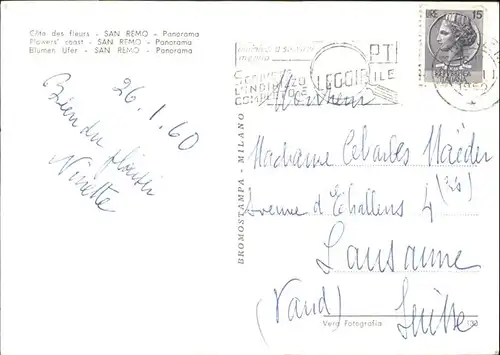 Côte des fleurs - SAN REMO - Panorama
Flowers' coast - SAN REMO - Panorama
Blumen Ufer - SAN REMO - Panorama
26.1.60
Bien du plaisir
Ninette
BROMOSTAMPA - MILANO
LEGGIBILE
LIRE 15
Monsieur
Madame Charles Maeder
Avenue d'Echallens 4
Lausanne
(Vaud) Suisse
Vera Fotografia